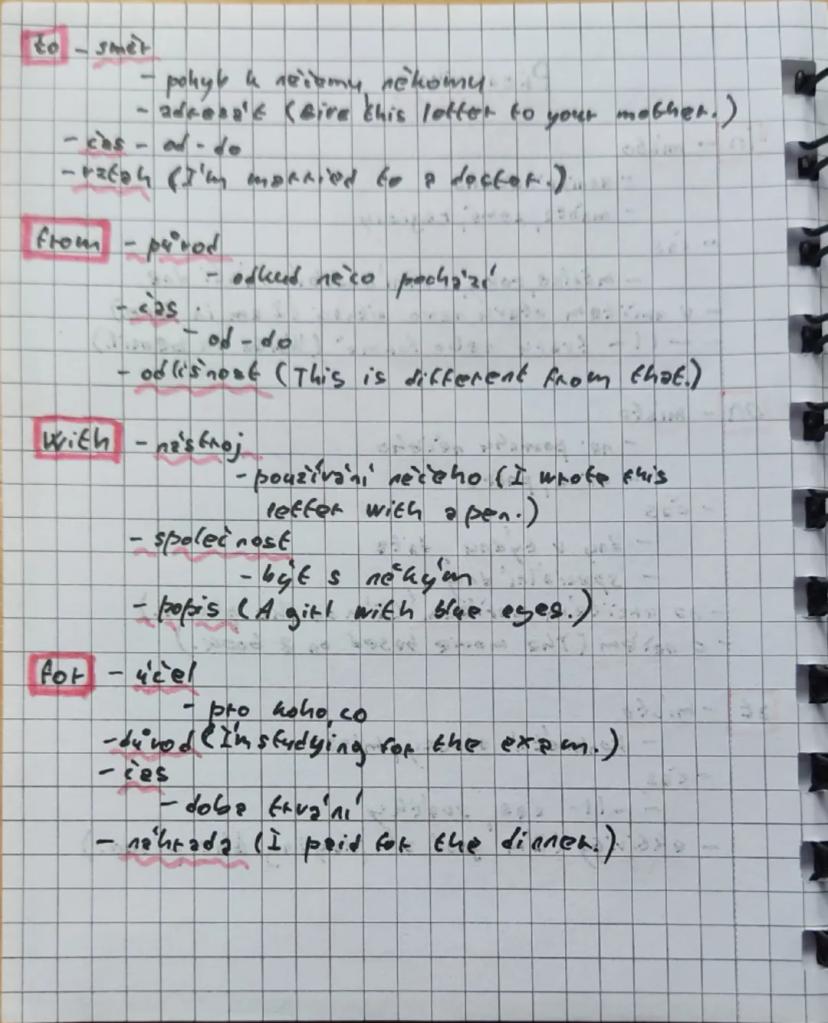 to - směr
- pohyb k něčemu někomu
- adresát (Give this letter to your mother.)
- čas - od - do
- vztah (I'm married to a doctor.)
from - původ
- odkud něco pochází
- čas
- od - do
- odlišnost (This is different from that.)
with - nástroj
- používání něčeho (I wrote this
letter with a pen.)
- společnost
- být s někým
- popis (A girl with blue eyes.)
for - účel
- pro koho, co
- důvod (I'm studying for the exam.)
- čas
- doba trvání
- náhrada (I paid for the dinner.)